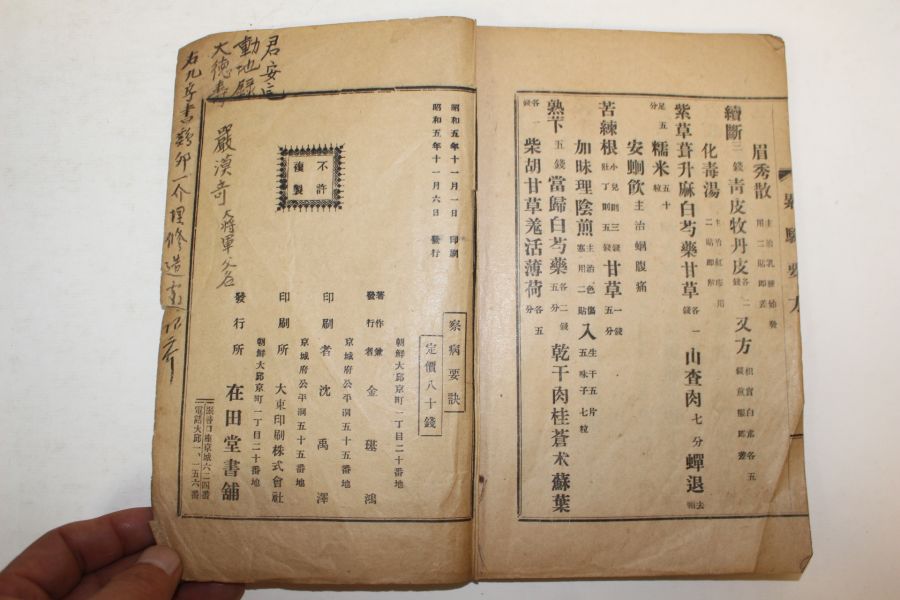 眉秀散 主治乳腫始發用二貼即差
續斷 三錢 靑皮牧丹皮 各二錢 又方
化毒湯
紫草茸升麻白芍藥甘草 各一錢 山查肉 七分 蟬退 去頭
足五分 糯米 五十粒
安蛔飮 主治蛔腹痛
苦練根 小兒則三錢壯丁則五錢 甘草 一錢五分
加味理陰煎 入 生干五片五味子七粒
熟芐 五錢 當歸白芍藥 各二錢五分 乾干肉桂蒼朮蘇葉
各一錢 柴胡甘草羗活薄荷 各五分
察病要訣
定價八十錢
昭和五年十一月一日 印刷
昭和五年十一月六日 發行
不許
複製
朝鮮大邱京町一丁目二十番地
著作兼發行者 金璂鴻
京城府公平洞五十五番地
印刷者 沈禹澤
京城府公平洞五十五番地
印刷所 大東印刷株式會社
朝鮮大邱京町一丁目二十番地
發行所 在田堂書舖
振替口座京城六二四番
電話大邱一、一五六番
君安
動地錄
大德壽
嚴漢奇 大將軍